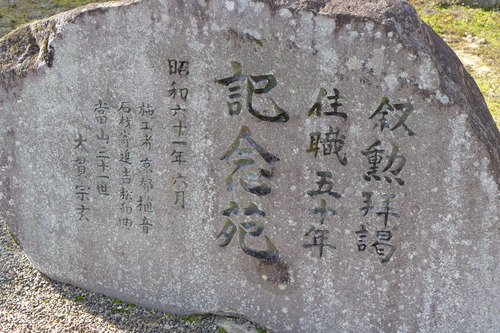 叙勲拝謁
住職五十年
記念苑
昭和六十一年六月
施工者京都植音
石材寄進吉
当山二十一世
大賀宗玄